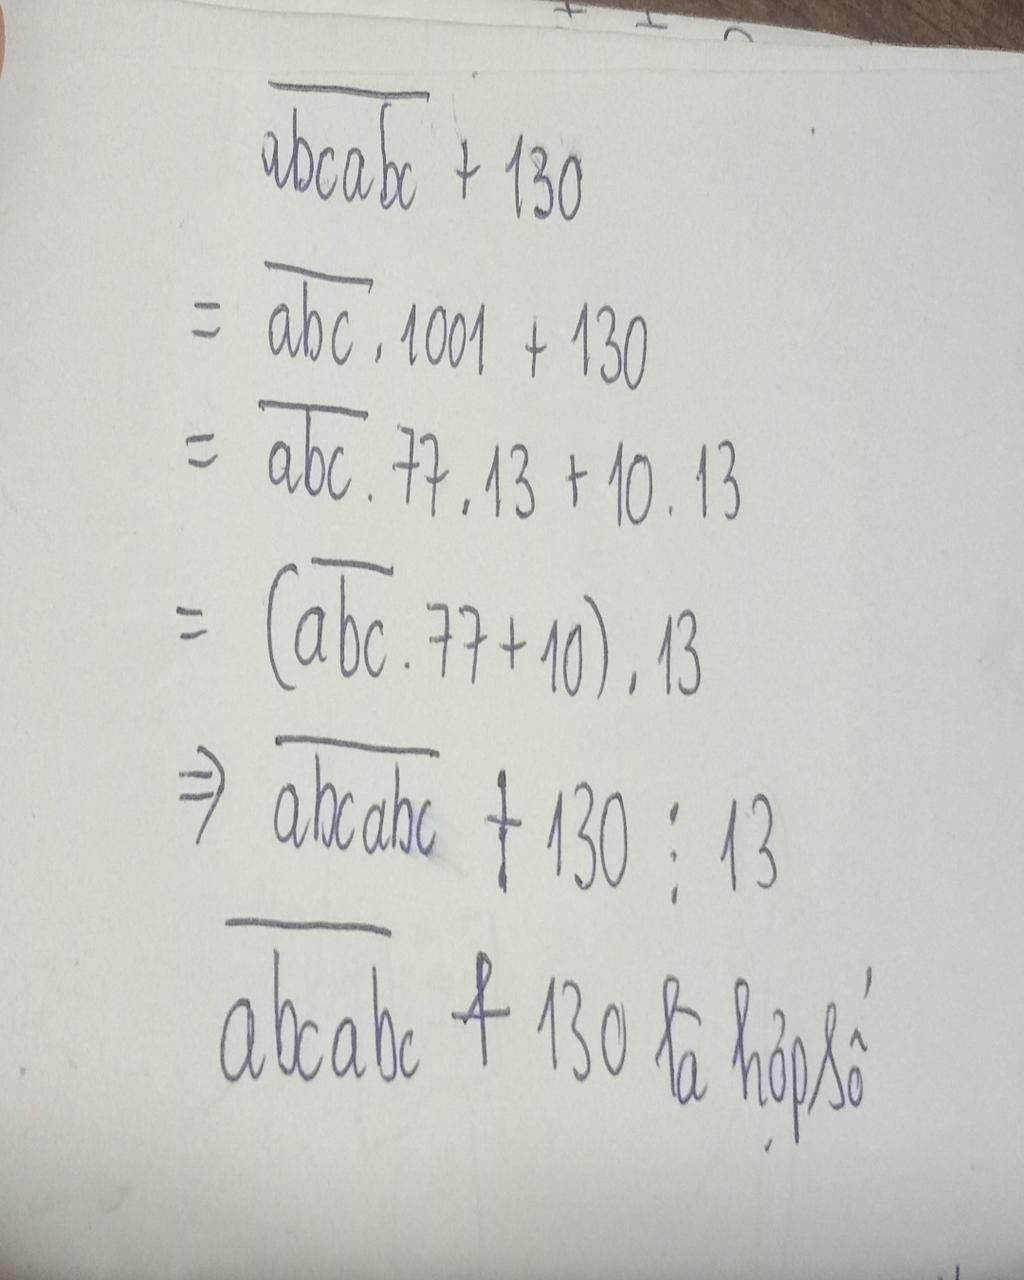 abcabc + 130
= abc . 1001 + 130
= abc . 77 . 13 + 10 . 13
= (abc . 77 + 10) . 13
⇒ abcabc + 130 ⋮ 13
abcabc + 130 là hợp số